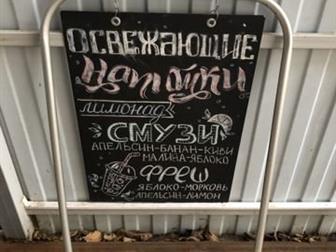 ОСВЕЖАЮЩИЕ
Напитки
ЛИМОНАД
СМУЗИ
АПЕЛЬСИН-БАНАН-КИВИ
МАЛИНА-ЯБЛОКО
ФРЕШ
ЯБЛОКО-МОРКОВЬ
АПЕЛЬСИН-ЛИМОН